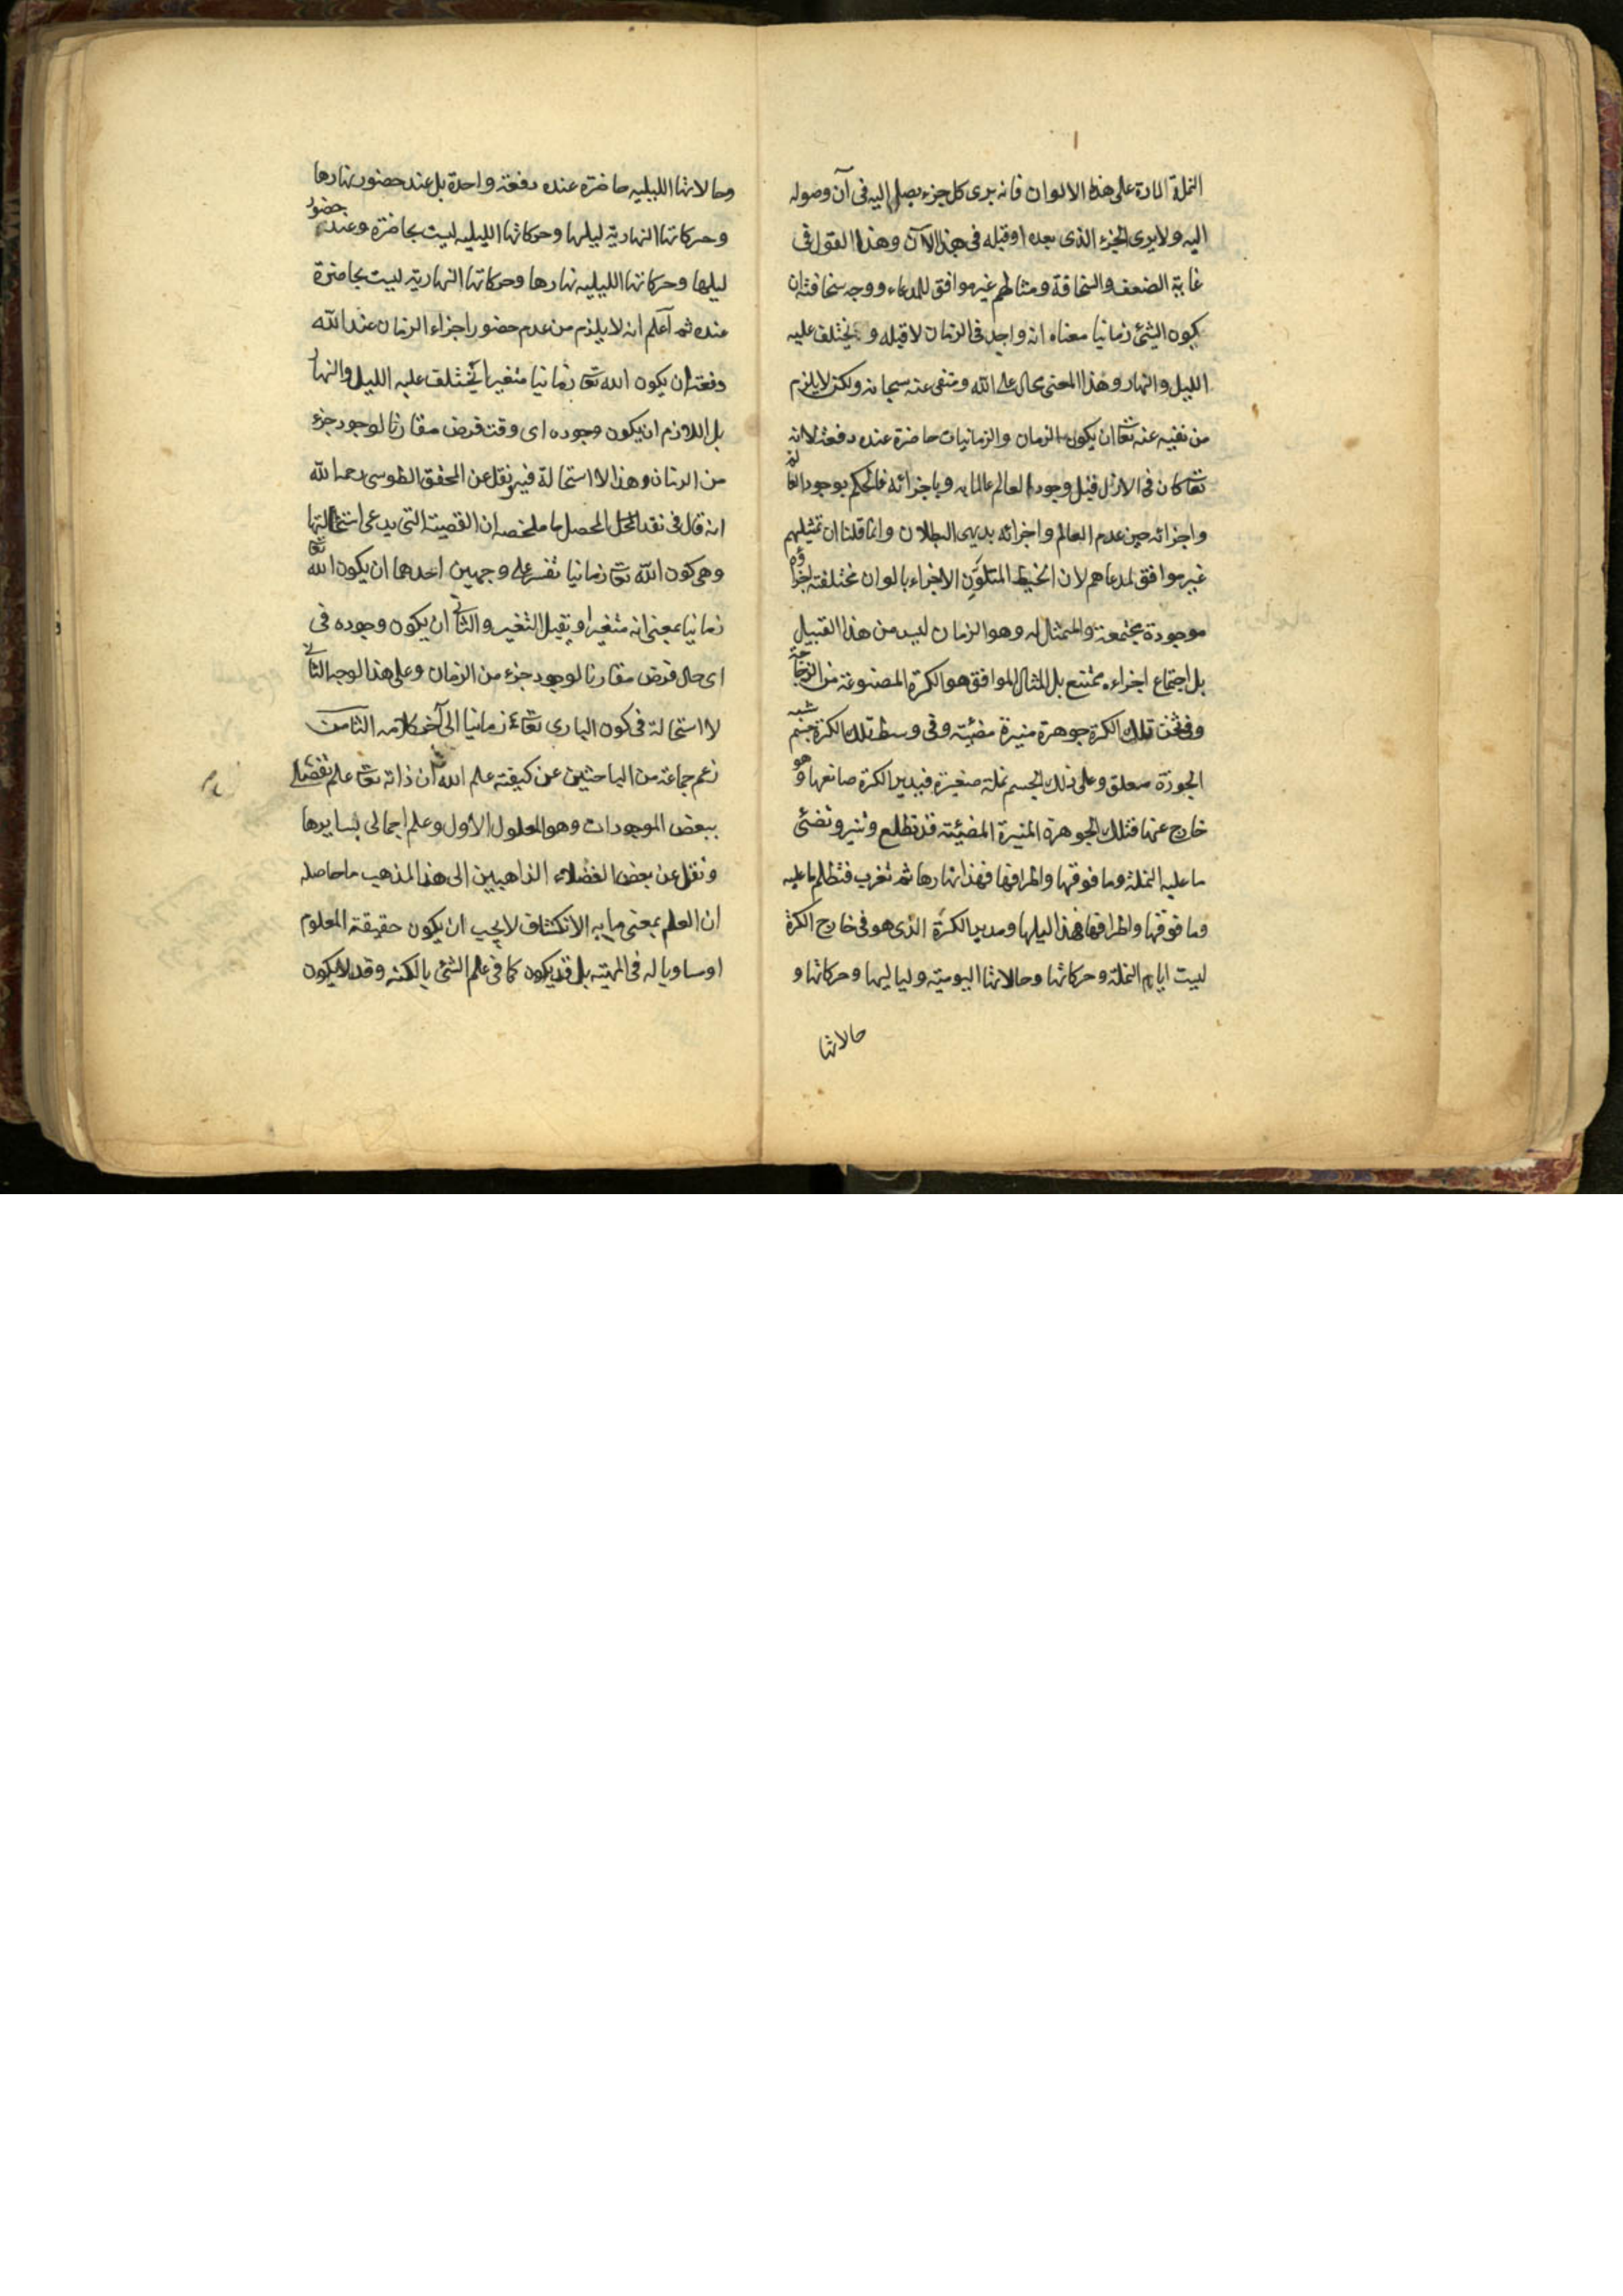 النملة المارة على هذه الالوان فانه يرى كل جزء يصل اليه فى آن وصوله
اليه ولا يرى الجزء الذى بعده او قبله فى هذا الآن وهذا القول فى
غاية الضعف والسخافة ومثالهم غير موافق للمدعاء ووجه سخافته ان
كون الشئ زمانيا معناه انه واجد فى الزمان لا قبله و يختلف عليه
الليل والنهار وهذا المعنى محال على الله ومنفى عنه سبحانه ولكن لا يلزم
من نفيه عنه تعا ان يكون الزمان والزمانيات حاضرة عنده دفعة لانه
تعا كان فى الازل قبل وجود العالم عالما به وباجزائه فالحكم بوجود العالم
واجزائه حين عدم العالم واجزائه بديهى البطلان وانما قلنا ان تمثيلهم
غير موافق لمدعاهم لان الخيط المتلون الاجزاء بالوان مختلفة اجزاؤه
موجودة مجتمعة والممثال له وهو الزمان ليس من هذا القبيل
بل اجتماع اجزاءه ممتنع بل المثال الموافق هو الكرة المصنوعة من الزجاجة
وفى ثخن تلك الكرة جوهرة منيرة مضيئة وفى وسط تلك الكرة جسم شبه
الجوزة معلق وعلى ذلك الجسم نملة صغيرة فيدير الكرة صانعها وهو
خارج عنها فتلك الجوهرة المنيرة المضيئة قد تطلع وتنير وتضئ
ما عليه النملة وما فوقها واطرافها فهذا نهارها ثم تغرب فتظلم ما عليه
وما فوقها واطرافها فهذا ليلها ومدير الكرة الذى هو فى خارج الكرة
ليست ايام النملة وحركاتها وحالاتها اليومية ولياليها وحركاتها و
حالاتها
وحالاتها الليليه حاضرة عنده دفعة واحدة بل عند حضور نهارها
وحركاتها النهارية ليلها وحركاتها الليليه ليست بحاضرة وعند حضور
ليلها وحركاتها الليليه نهارها وحركاتها النهارية ليست بحاضرة
عنده ثم اعلم انه لا يلزم من عدم حضور اجزاء الزمان عند الله
دفعة ان يكون الله تعا زمانيا متغيرا يختلف عليه الليل والنهار
بل اللازم ان يكون وجوده اى وقت فرض مقارنا لوجود جزء
من الزمان وهذا لا استحالة فيه ونقل عن المحقق الطوسى رحمه الله
انه قال فى نقد المحصل ما ملخصه ان القضية التى يدعى استحالتها
وهى كون الله تعا زمانيا تفسر على وجهين احدهما ان يكون الله تعا
زمانيا بمعنى انه متغير او يقبل التغير والثانى ان يكون وجوده فى
اى حال فرض مقارنا لوجود جزء من الزمان وعلى هذا الوجه الثانى
لا استحالة فى كون البارى تعا زمانيا الى آخر كلامه الثامن
زعم جماعة من الباحثين عن كيفية علم الله ان ذاته تعا علم تفصيلى
ببعض الموجودات وهو المعلول الاول وعلم اجمالى بسايرها
ونقل عن بعض الفضلاء الذاهبين الى هذا المذهب ما حاصله
ان العلم بمعنى ما به الانكشاف لا يجب ان يكون حقيقة المعلوم
او مساويا له فى المهية بل قد يكون كما فى علم الشئ بالكنه وقد لا يكون